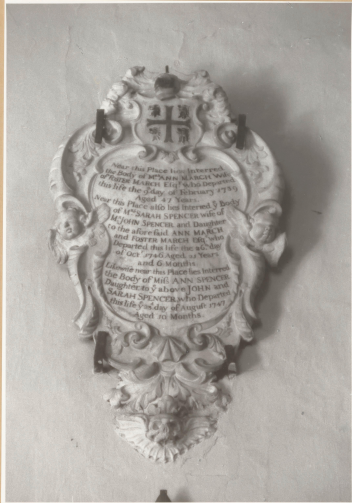 Near this Place lies Interred
the Body of Mrs ANN MARCH Wife
of FOSTER MARCH Esqr who Departed
this life the day of February 1739
Aged 47 Years.
Near this Place also lies Interred ye Body
of Mrs SARAH SPENCER Wife of
Mr JOHN SPENCER and Daughter
to the aforesaid ANN MARCH
and FOSTER MARCH Esqr who
Departed this life the 26th day
of Octr 1746 Aged 22 Years
and 6 Months.
Likewise near this Place lies Interred
the Body of Miss ANN SPENCER
Daughter to ye above JOHN and
SARAH SPENCER who Departed
this life ye day of August 1747
Aged Months.